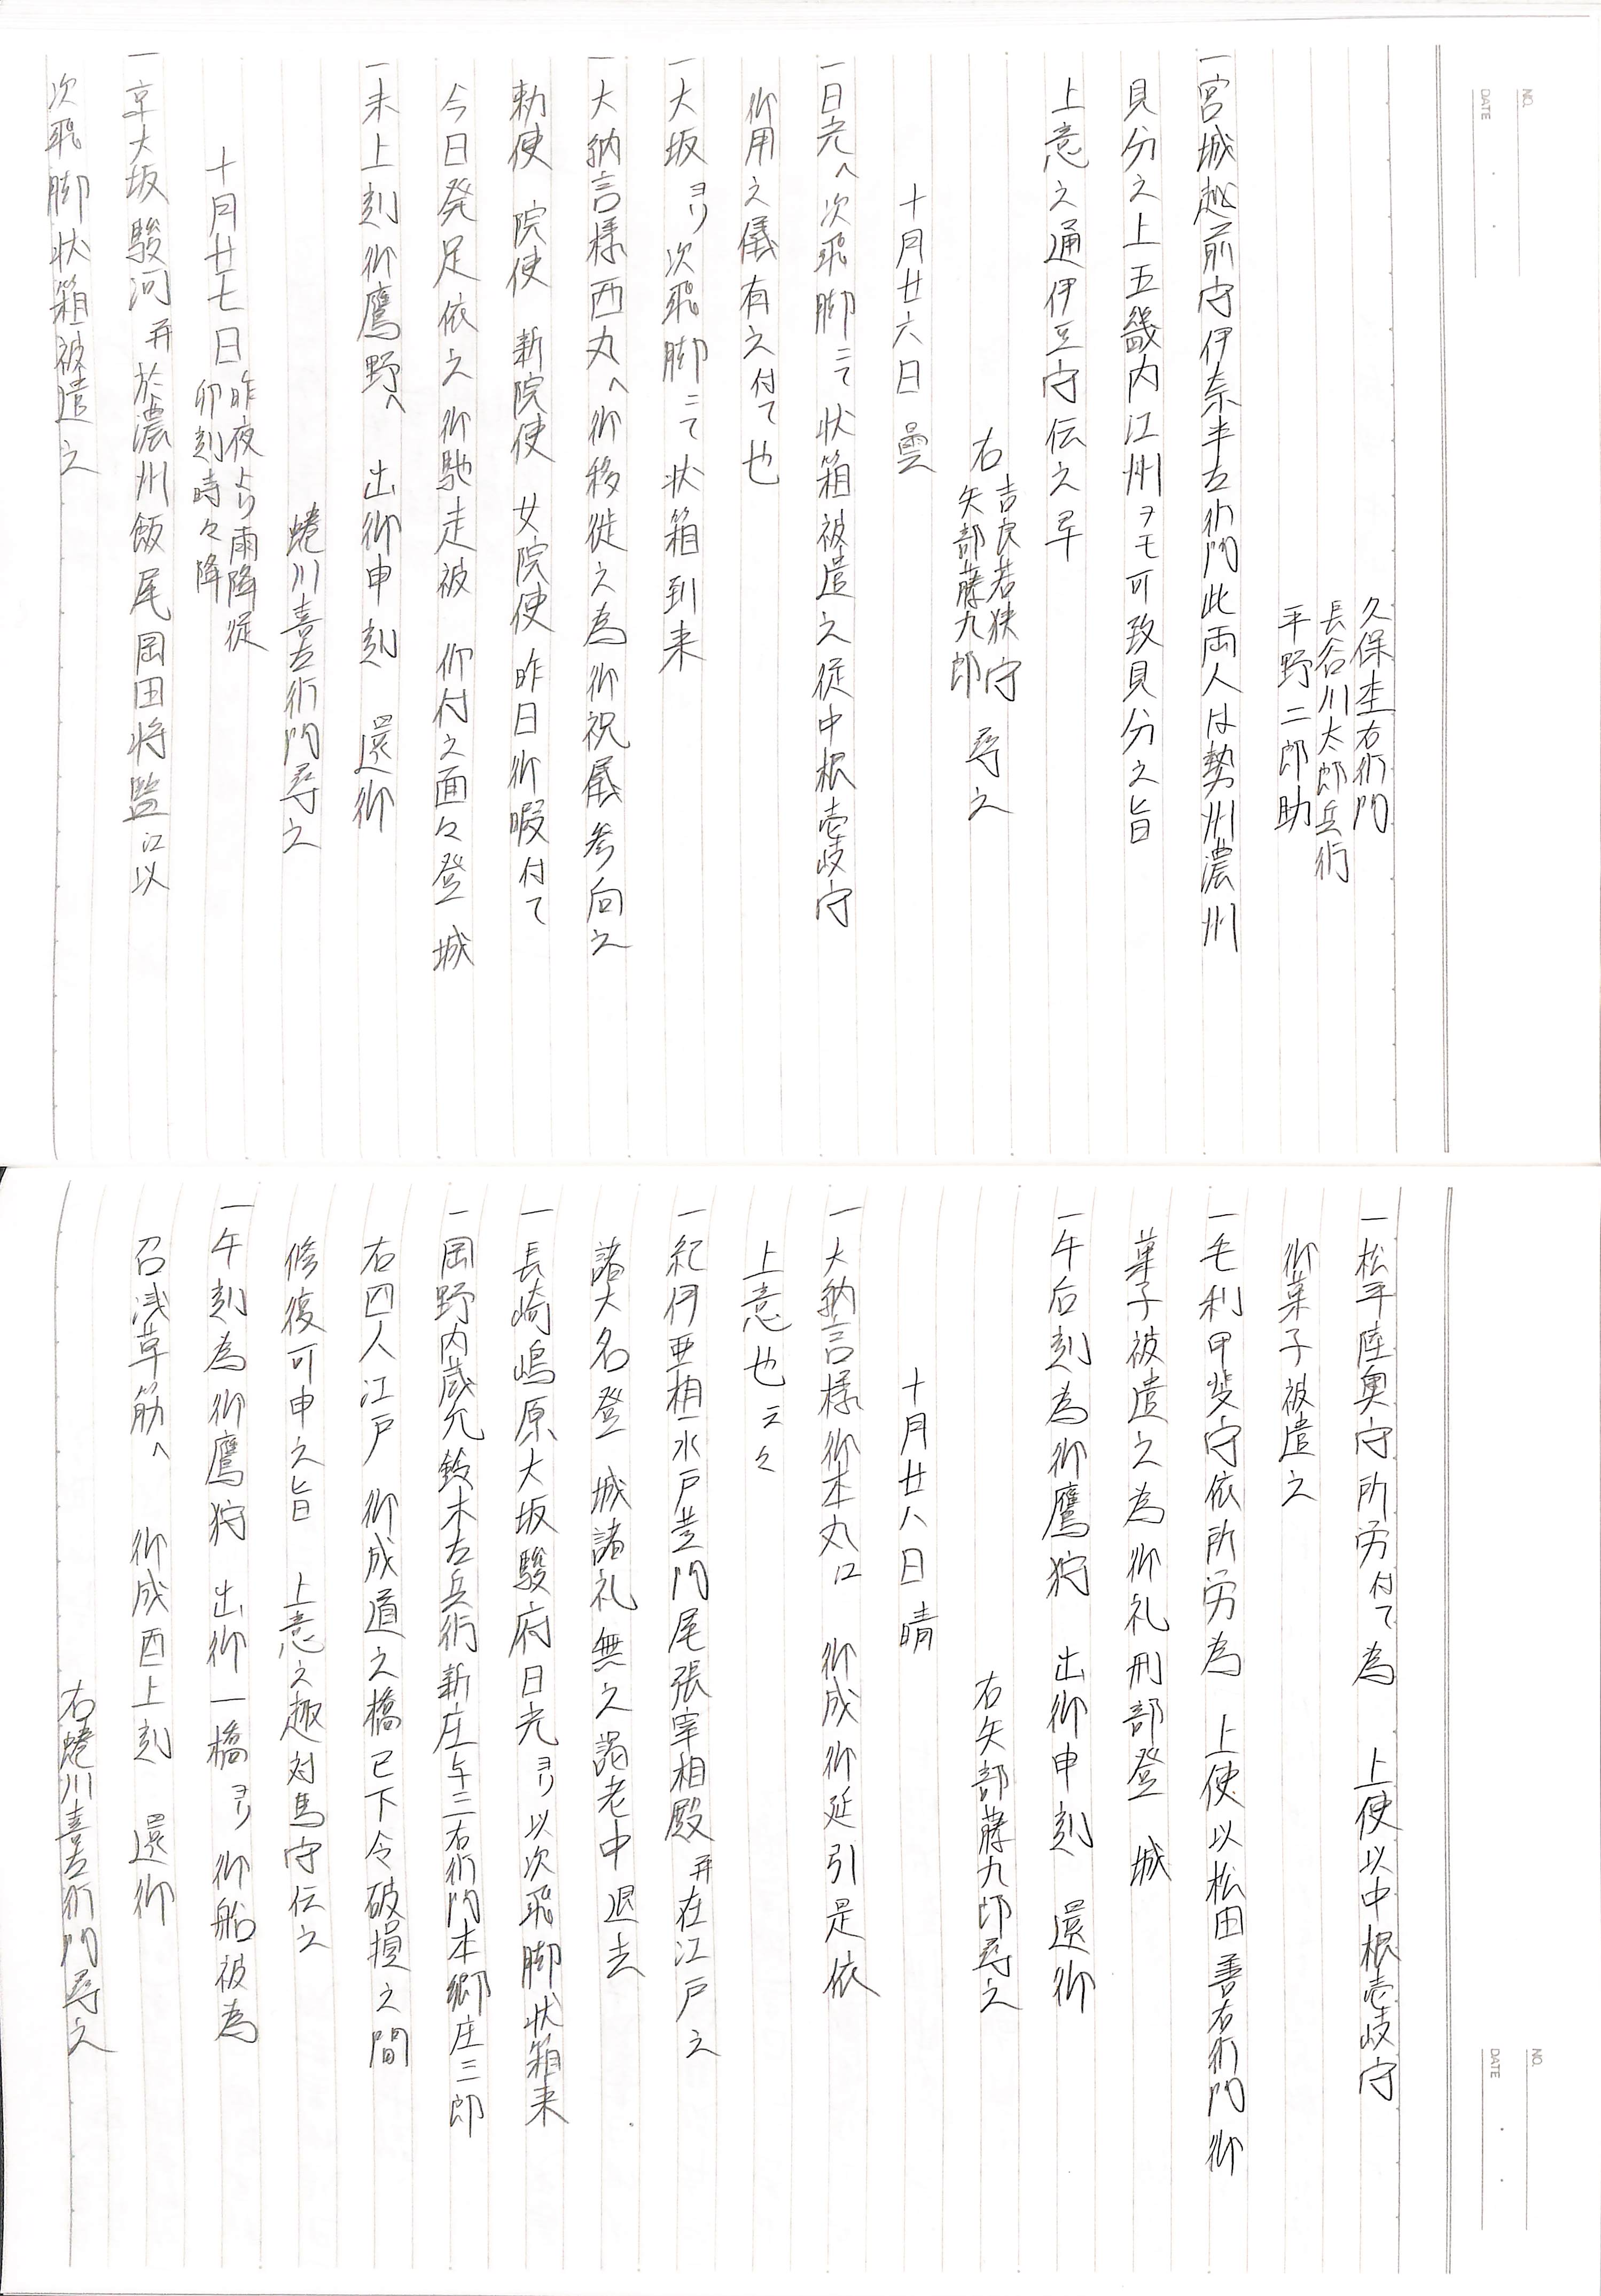 NO.
DATE
久保杢右衛門
長谷川太郎兵衛
平野二郎助
一宮城越前守伊奈半左衛門此両人は勢州濃州
見分之上五畿内江州ヲモ可致見分之旨
上意之通伊豆守伝之畢
右 吉良若狭守
矢部藤九郎 尋之
十月廿六日 曇
一日光へ次飛脚ニて状箱被遣之従中根壱岐守
御用之儀有之付て也
一大坂ヨリ次飛脚ニて状箱到来
一大納言様西丸へ御移徙之為御祝儀参向之
勅使 院使 新院使 女院使昨日御暇付て
今日発足依之御馳走被 仰付之面々登 城
一未上刻御鷹野へ 出御申刻 還御
蜷川喜左衛門尋之
十月廿七日 昨夜より雨降従
卯刻時々降
一京大坂駿河并於濃州飯尾岡田将監江以
次飛脚状箱被遣之
NO.
DATE
一松平陸奥守所労付て為 上使以中根壱岐守
御菓子被遣之
一毛利甲斐守依所労為 上使以松田善右衛門御
菓子被遣之為御礼刑部登 城
一午后刻為御鷹狩 出御申刻 還御
右矢部藤九郎尋之
十月廿八日 晴
一大納言様御本丸江 御成御延引是依
上意也云々
一紀伊亜相水戸黄門尾張宰相殿并在江戸之
諸大名登 城諸礼無之謁老中退去
一長崎嶋原大坂駿府日光ヨリ以次飛脚状箱来
一岡野内蔵允鈴木左兵衛新庄与三右衛門本郷庄三郎
右四人江戸 御成道之橋已下令破損之間
修復可申之旨 上意之趣対馬守伝之
一午刻為御鷹狩 出御一橋ヨリ御船被為
召浅草筋へ 御成酉上刻 還御
右蜷川喜左衛門尋之